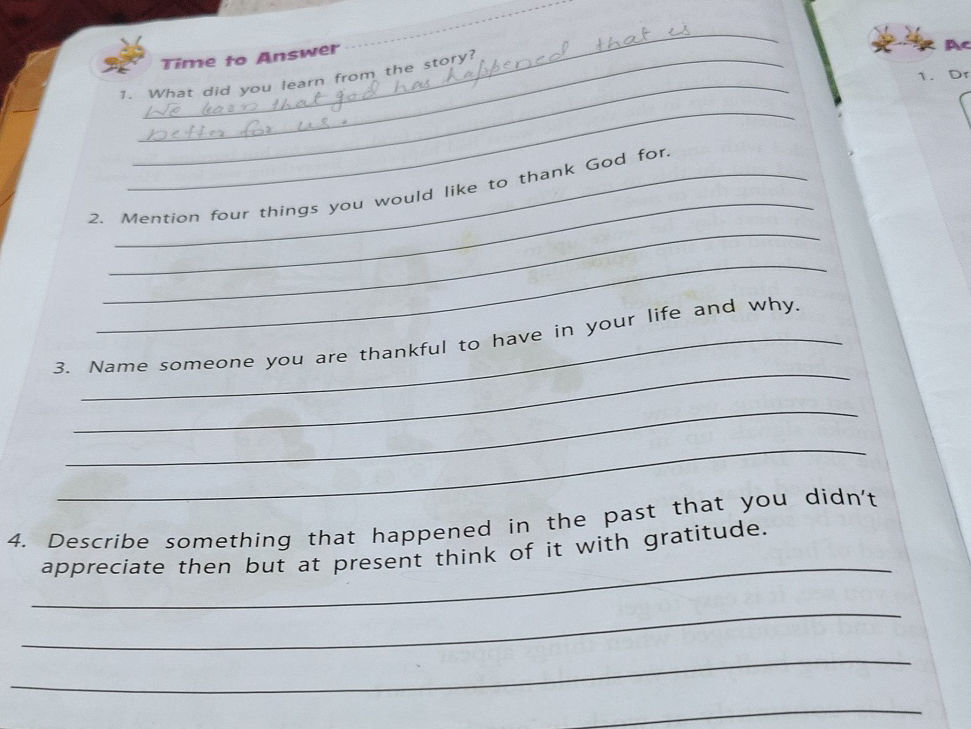 Time to Answer
1. What did you learn from the story?
We learn that god has happened that is
better for us.
2. Mention four things you would like to thank God for.
3. Name someone you are thankful to have in your life and why.
4. Describe something that happened in the past that you didn't
appreciate then but at present think of it with gratitude.
Ac
1. Dr